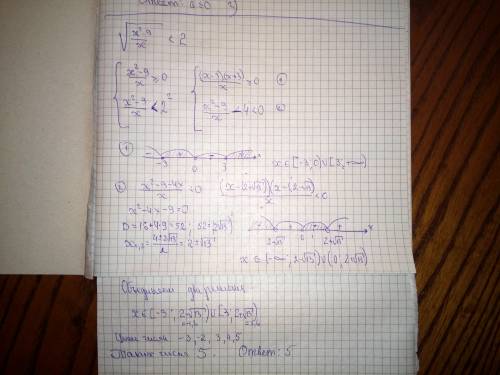 Ответ: a>0 3)
√((x²-9)/x) < 2
{ (x²-9)/x ≥ 0 { ((x-3)(x+3))/x ≥ 0 ①
{ (x²-9)/x < 2² { (x²-9)/x - 4 < 0 ②
① - + - + x
-3 0 3
x ∈ [-3, 0) ∪ [3, +∞)
② (x²-9-4x)/x < 0 ((x-(2+√13))(x-(2-√13)))/x < 0
x²-4x-9=0
D=16+4·9=52; 52=2√13
x₁,₂ = (4±2√13)/2 = 2±√13
2-√13 0 2+√13 x
x ∈ (-∞; 2-√13) ∪ (0; 2+√13)
Объединяем два решения
x ∈ [-3; 2-√13) ∪ [3; 2+√13)
≈-1,6 ≈5,6
Целые числа -3, -2, 3, 4, 5
Таких чисел 5. Ответ: 5